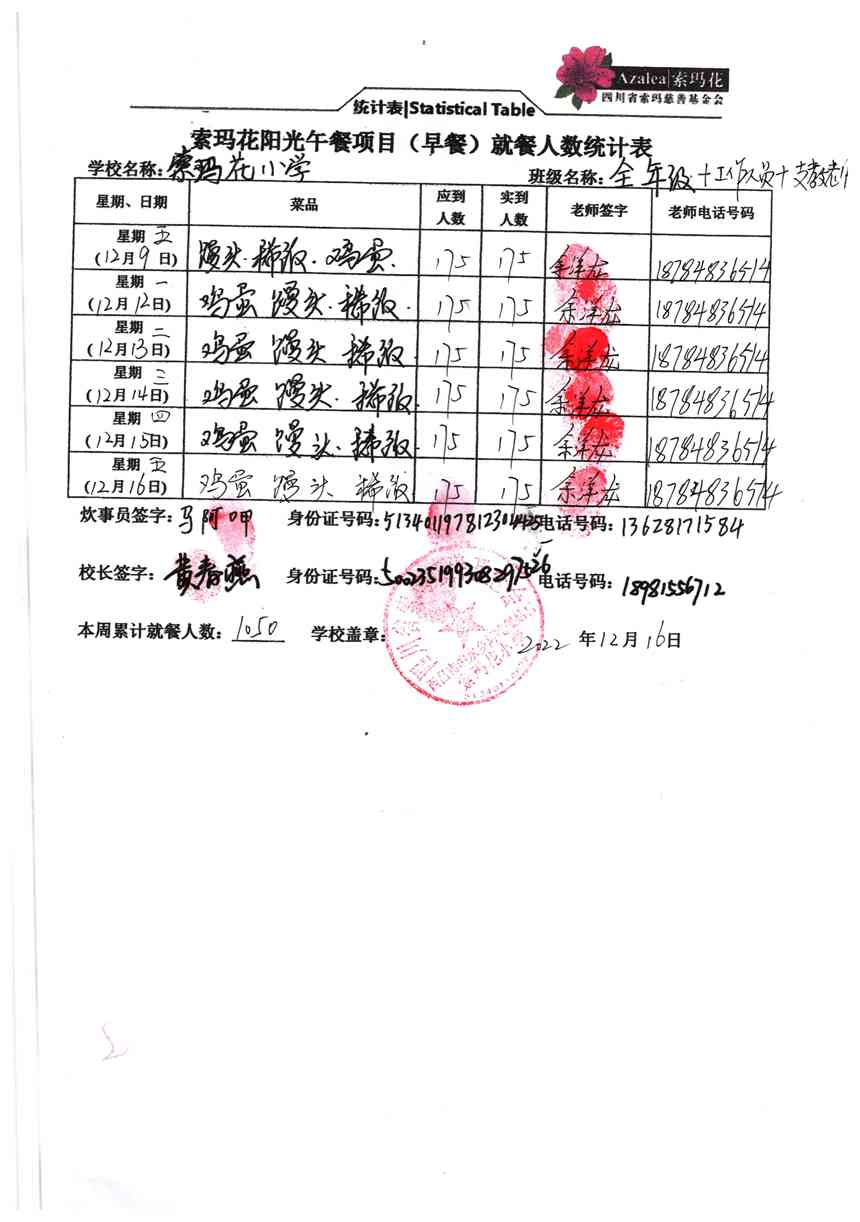 Azalea|索玛花
四川省索玛慈善基金会
统计表|Statistical Table
索玛花阳光午餐项目（早餐）就餐人数统计表
学校名称：索玛花小学 班级名称：全年级+工作人员+支教老师
星期、日期 菜品 应到人数 实到人数 老师签字 老师电话号码
星期 五 (12月9日) 馒头·稀饭·鸡蛋 175 175 余洋龙 18784836514
星期 一 (12月12日) 鸡蛋 馒头·稀饭 175 175 余洋龙 18784836514
星期 二 (12月13日) 鸡蛋 馒头 稀饭 175 175 余洋龙 18784836514
星期 三 (12月14日) 鸡蛋 馒头·稀饭 175 175 余洋龙 18784836514
星期 四 (12月15日) 鸡蛋 馒头·稀饭 175 175 余洋龙 18784836514
星期 五 (12月16日) 鸡蛋 馒头 稀饭 175 175 余洋龙 18784836514
炊事员签字：马阿呷 身份证号码： 电话号码：13628171584
校长签字：黄春燕 身份证号码： 电话号码：18981556712
本周累计就餐人数：1050 学校盖章： 2022年12月16日